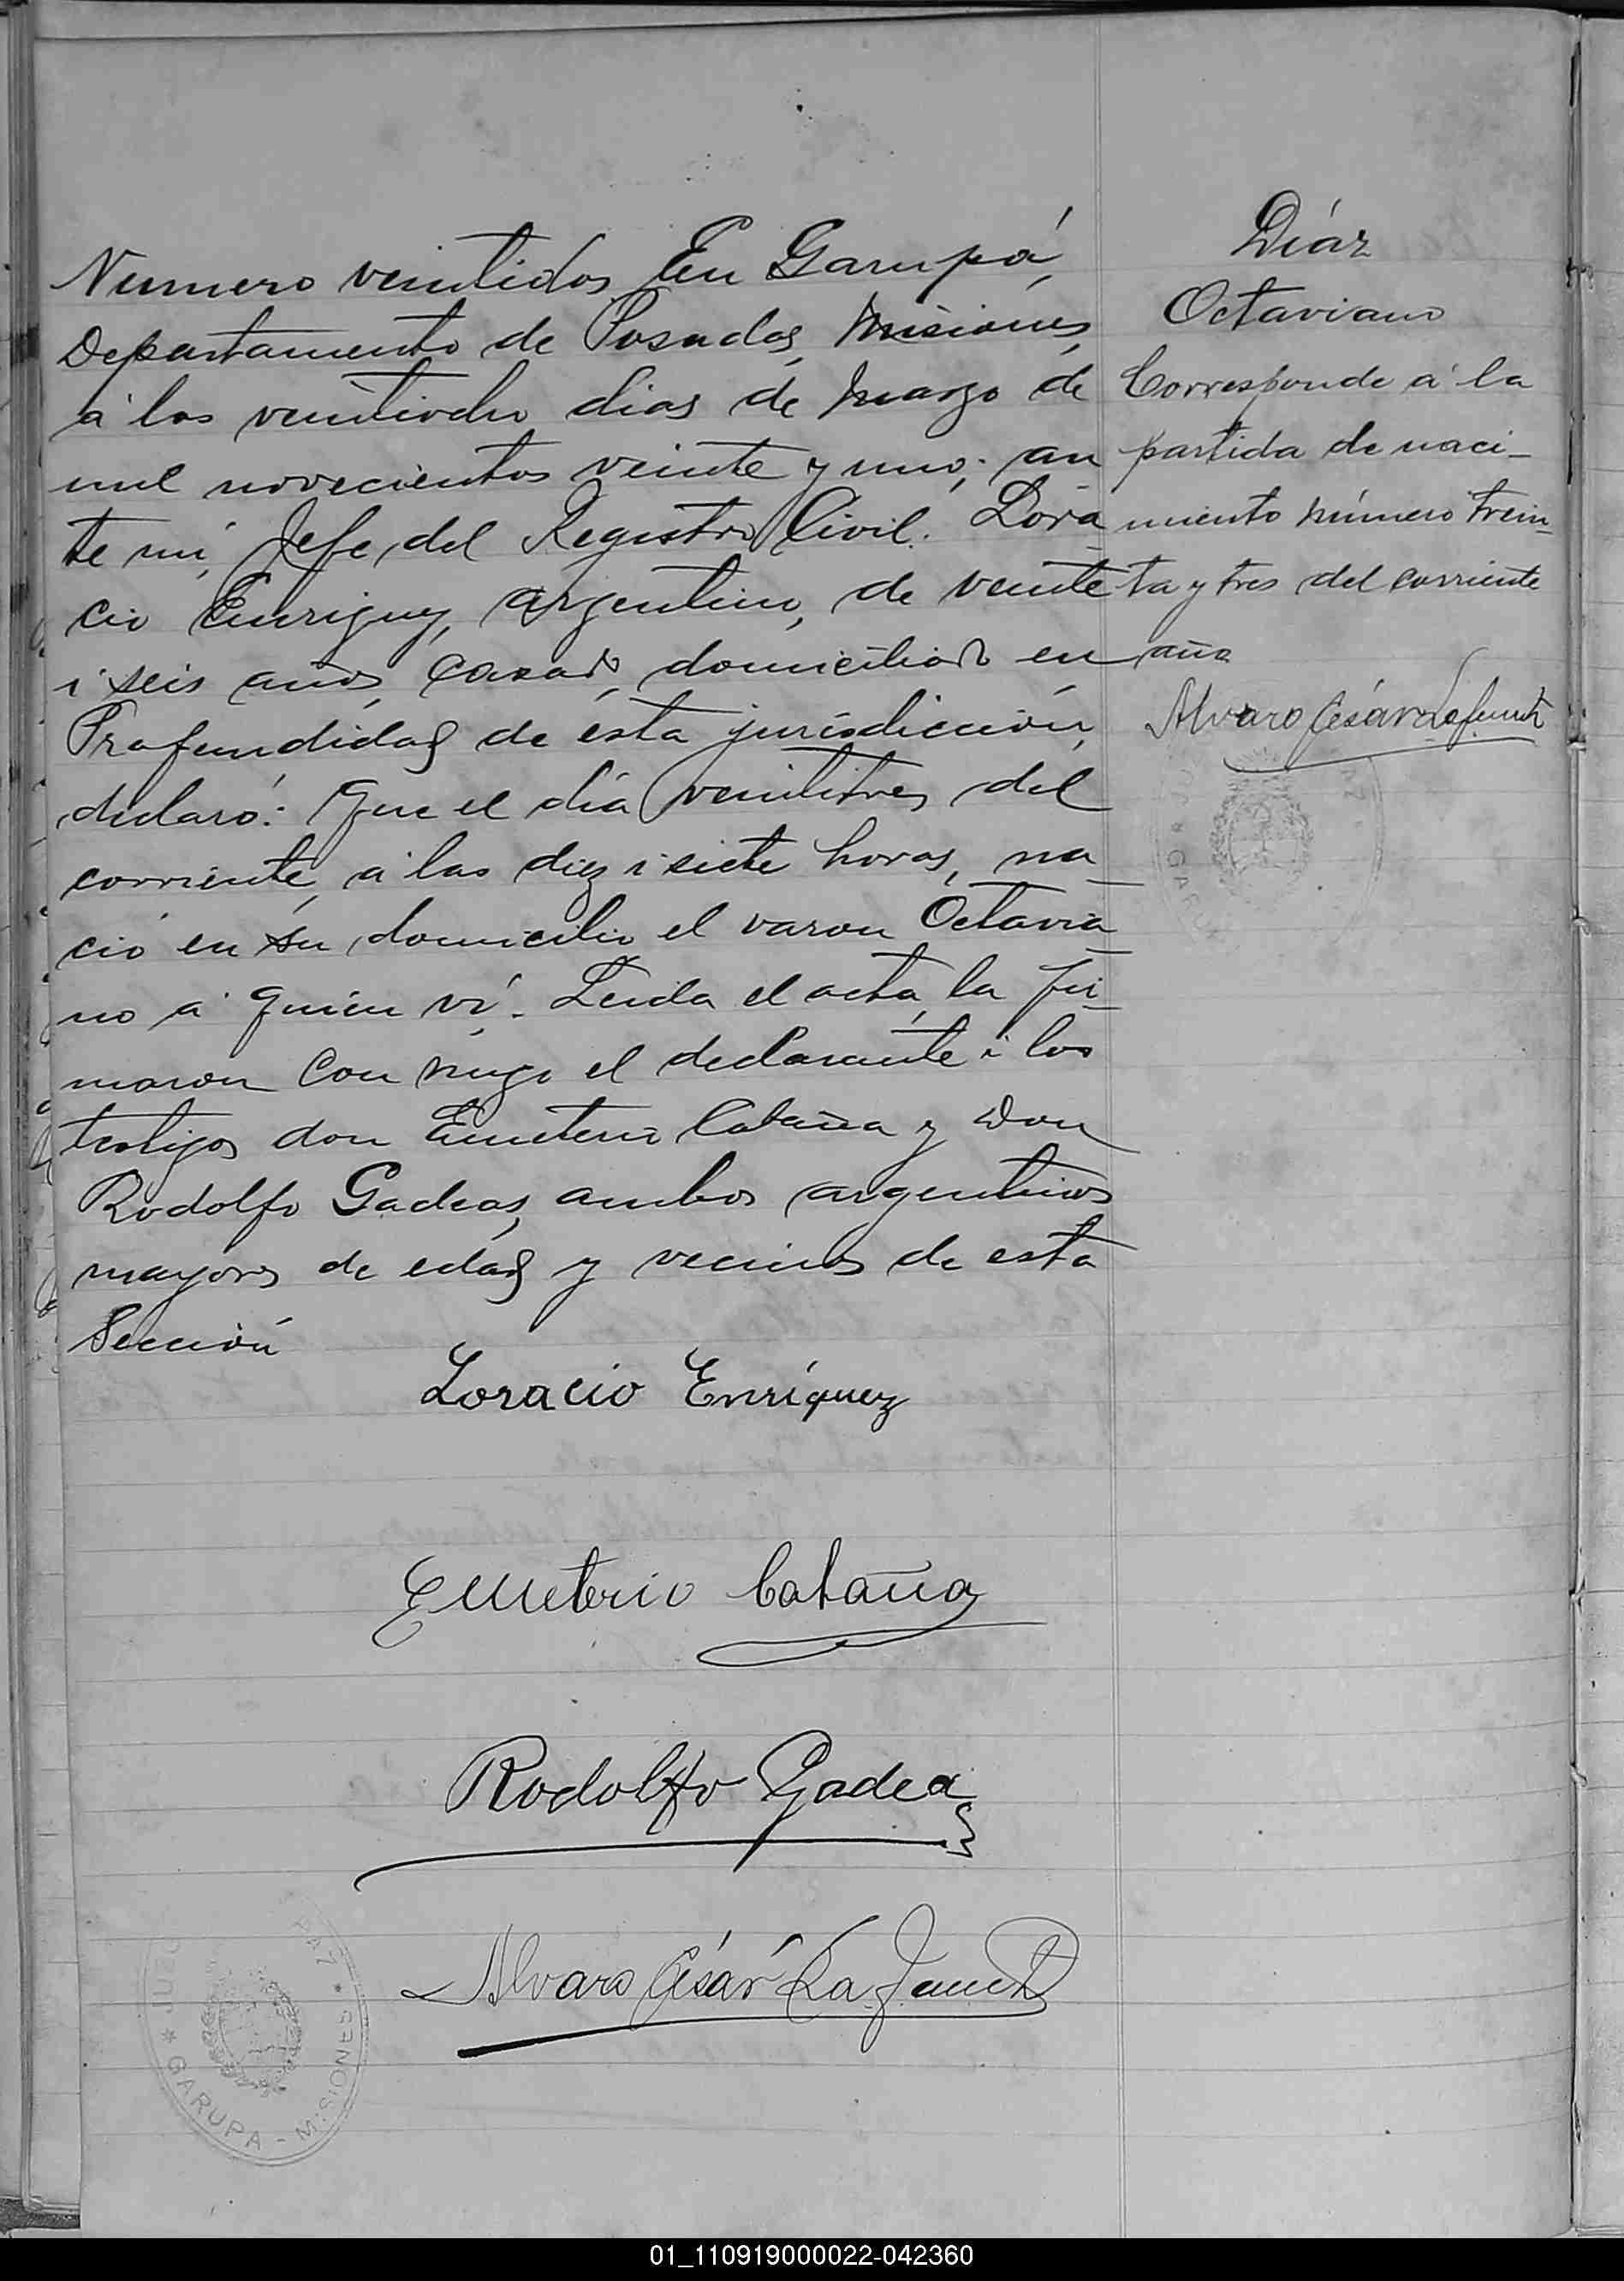 Numero veintidos En Garupá,
Departamento de Posadas, Misiones,
á los veintiocho dias de Marzo de
mil novecientos veinte y uno; an
te mi, Jefe del Registro Civil. Lora
cio Enriquez, argentino, de veinte
i seis años, casado, domiciliado en
Profundidad de ésta jurisdicción,
declaró: Que el día veintitres del
corriente, á las diez i siete horas, na
ció en su domicilio el varon Octavia
no á quien ví. Leida el acta, la fir-
maron con migo el declarante i los
testigos don Emeterio Cataña y Don
Rodolfo Gadeas, ambos argentinos
mayores de edad y vecinos de esta
Sección
Loracio Enríquez
Emeterio Cataña
Rodolfo Gadea
Alvaro César
Díaz
Octaviano
Corresponde á la
partida de naci-
miento número trein
ta y tres del corriente
año
Alvaro César
GARUPA
JU
PAZ * MISIONES
* GARUPA -
01_110919000022-042360